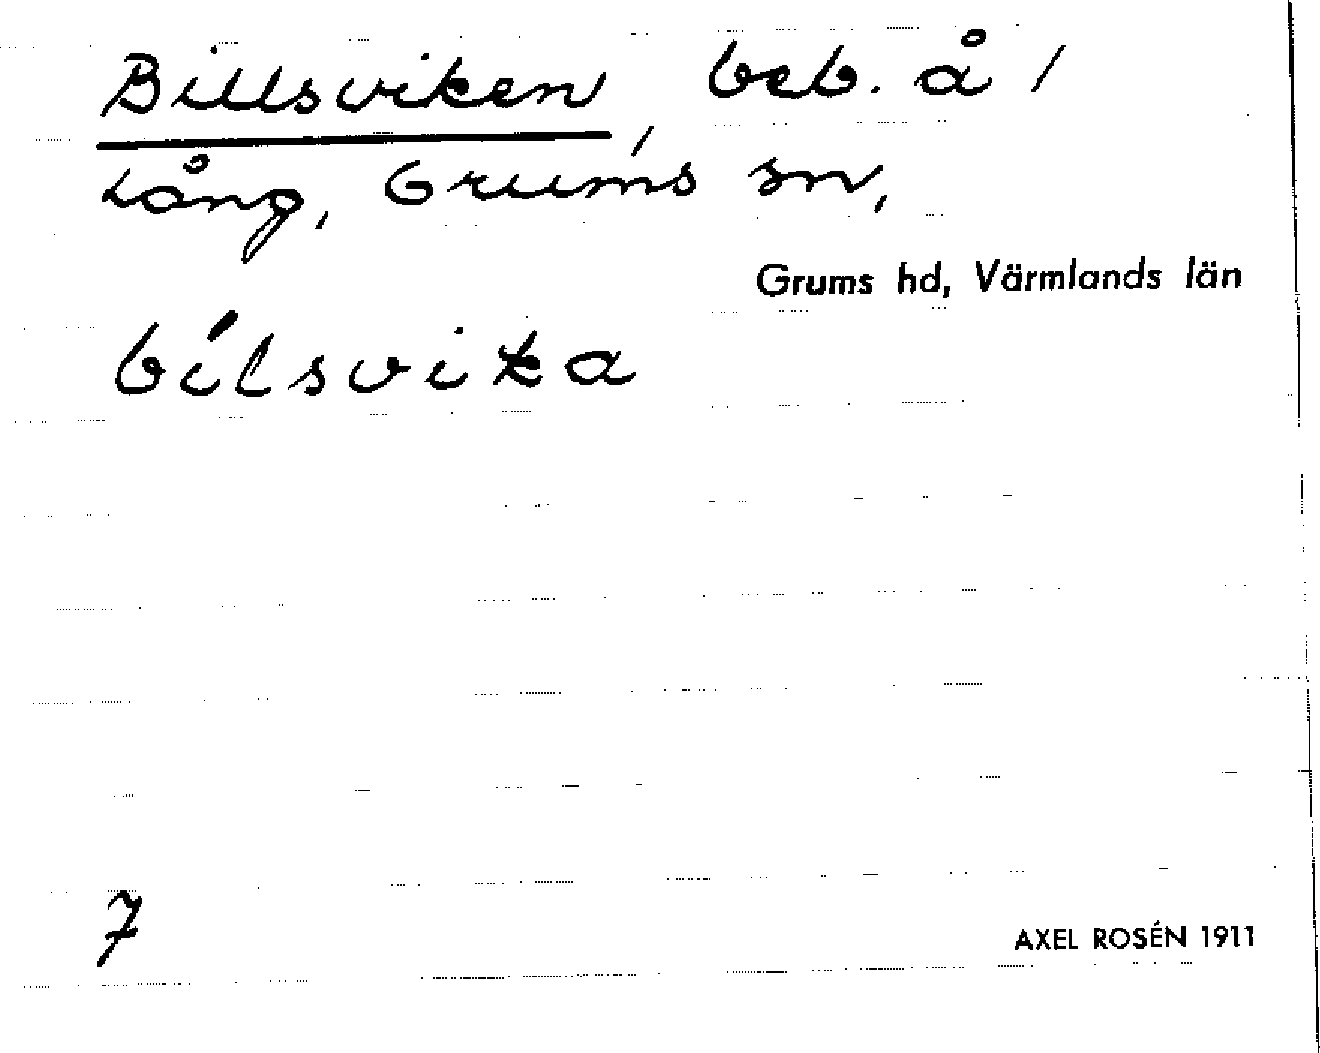 Billsviken, beb. å 1
Lång, Grums sn,
Grums hd, Värmlands län
bílsvika
7
AXEL ROSÉN 1911